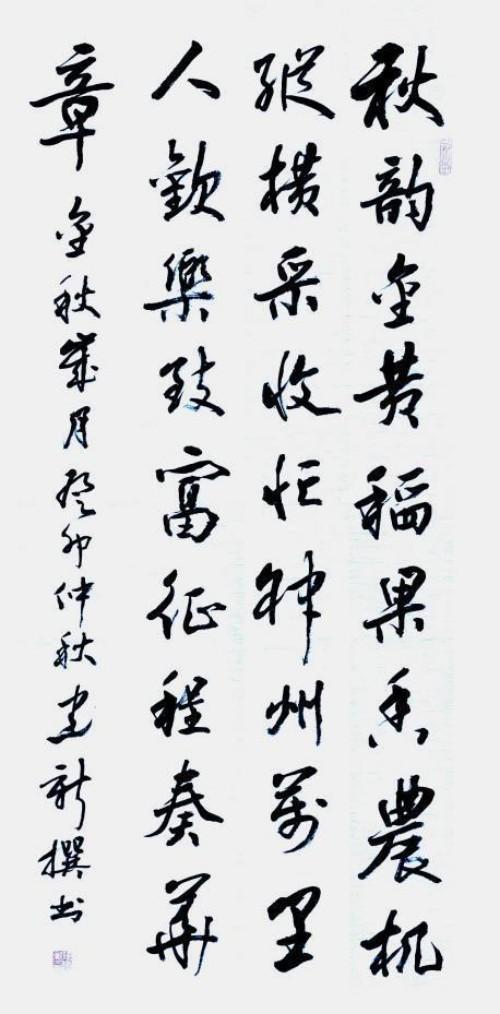 秋韵金黄稻果香農机
縱横采收忙神州萬里
人歡樂致富征程奏華
章 金秋歲月癸卯仲秋建新撰书